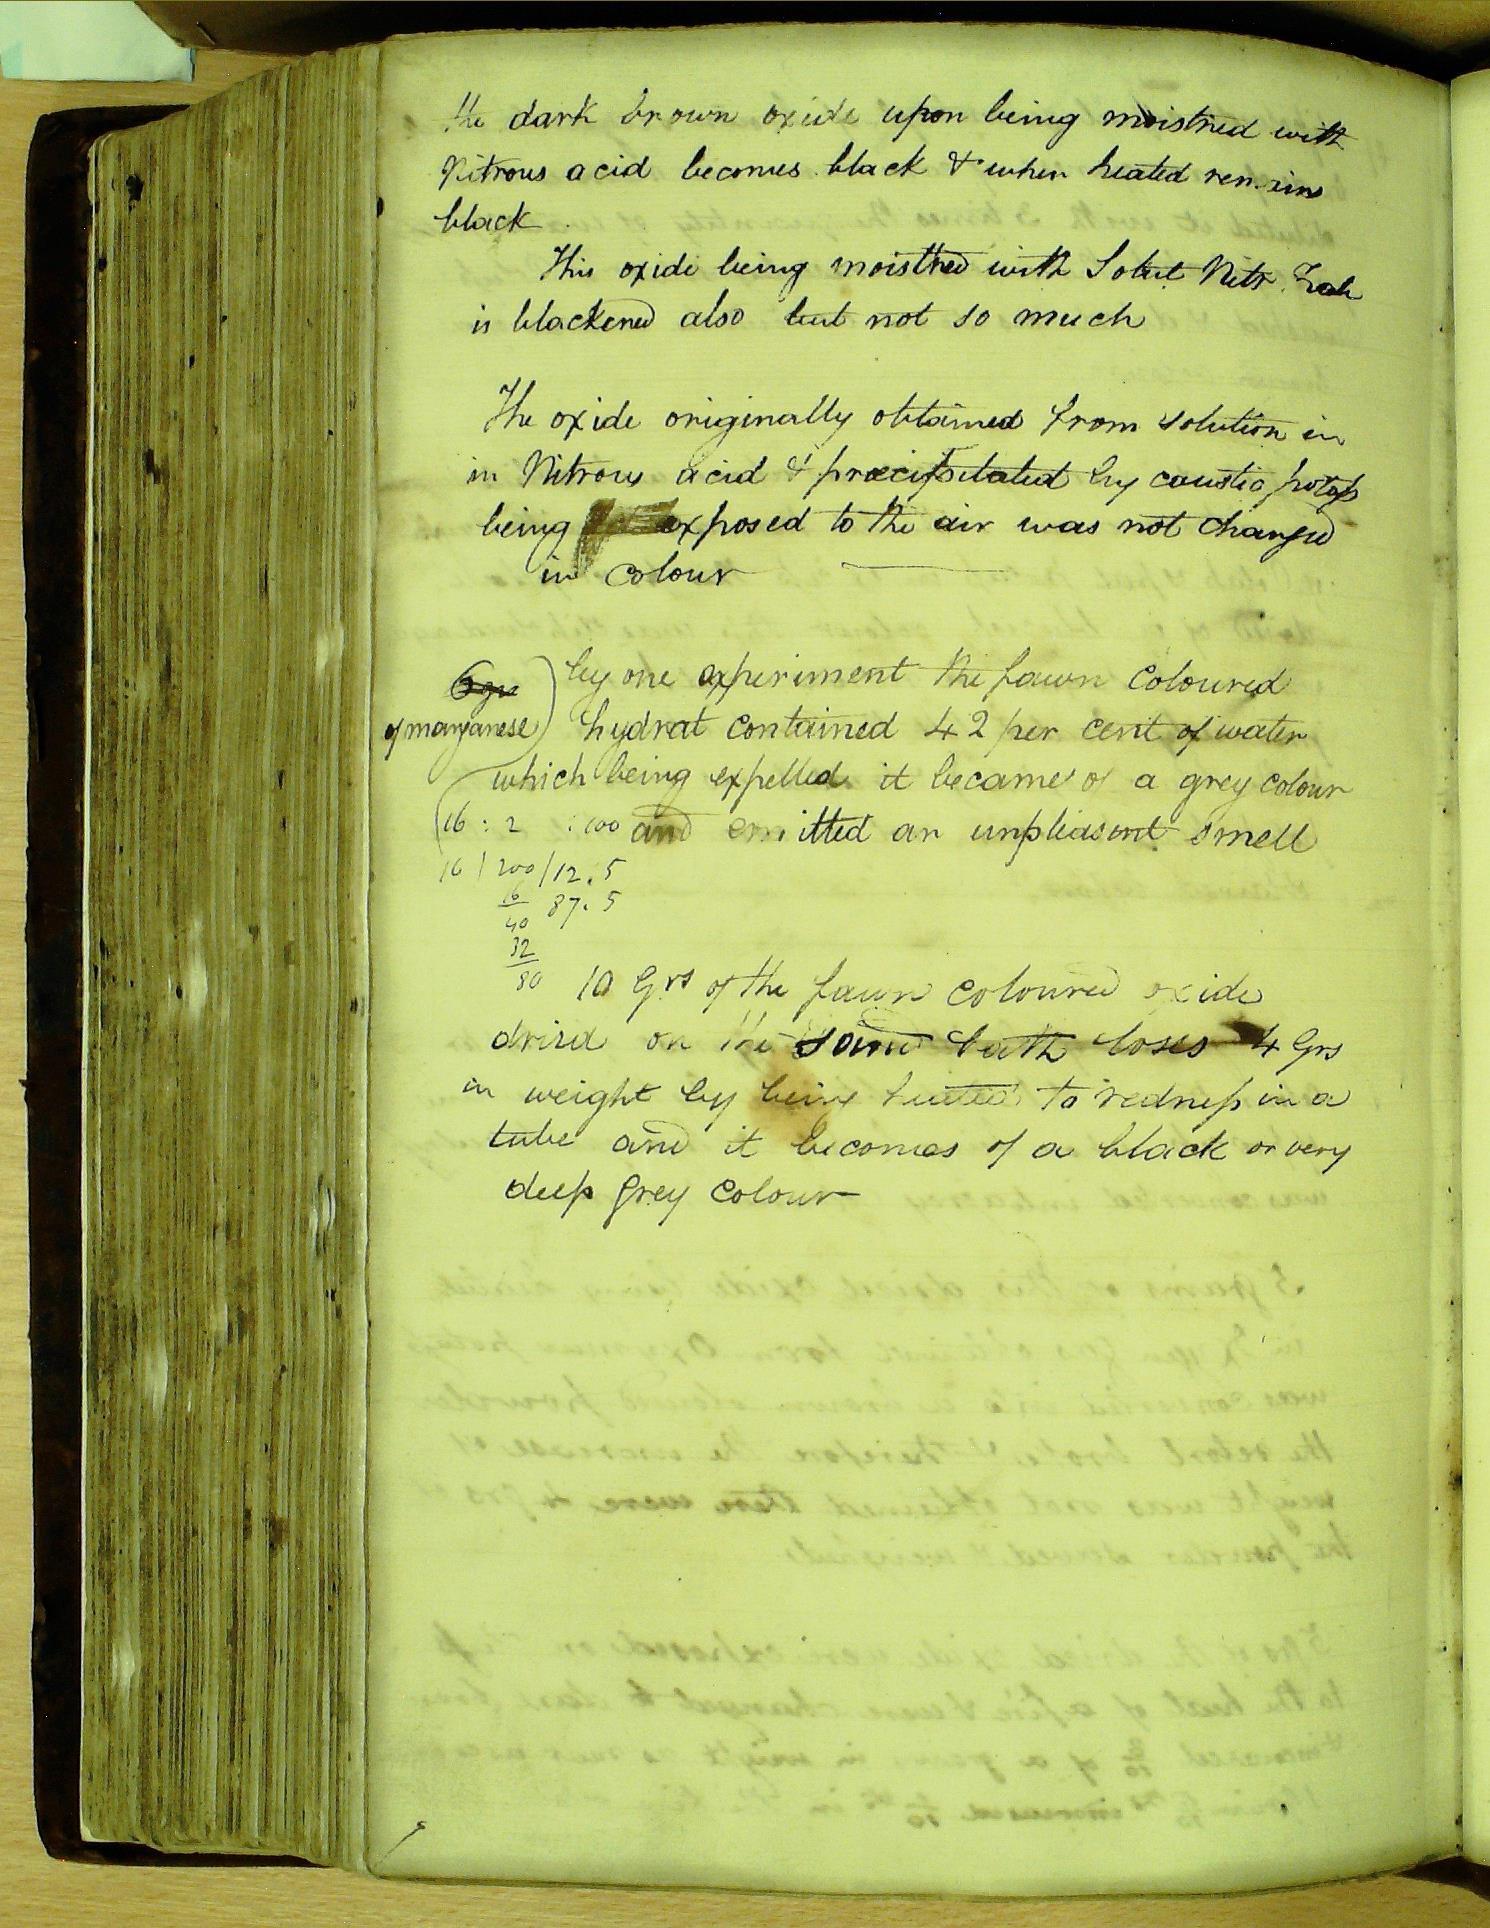 the dark brown oxide upon being moistned with
Nitrous acid becomes black & when heated remains
black
This oxide being moistned with Solut Nitr
is blackened also but not so much
The oxide originally obtained from solution in
in Nitrous acid & precipitated by caustic potash
being exposed to the air was not changed
in colour
by one experiment the fawn coloured
of manganese) hydrat contained 42 per cent of water
which being expelled it became of a grey colour
16 : 2 : 100 and emitted an unpleasant smell
16 | 200 / 12.5
16 87.5
40
32
80
10 Grs of the fawn coloured oxide
dried on the sand bath loses 4 Grs
in weight by being heated to redness in a
tube and it becomes of a black or very
deep grey colour